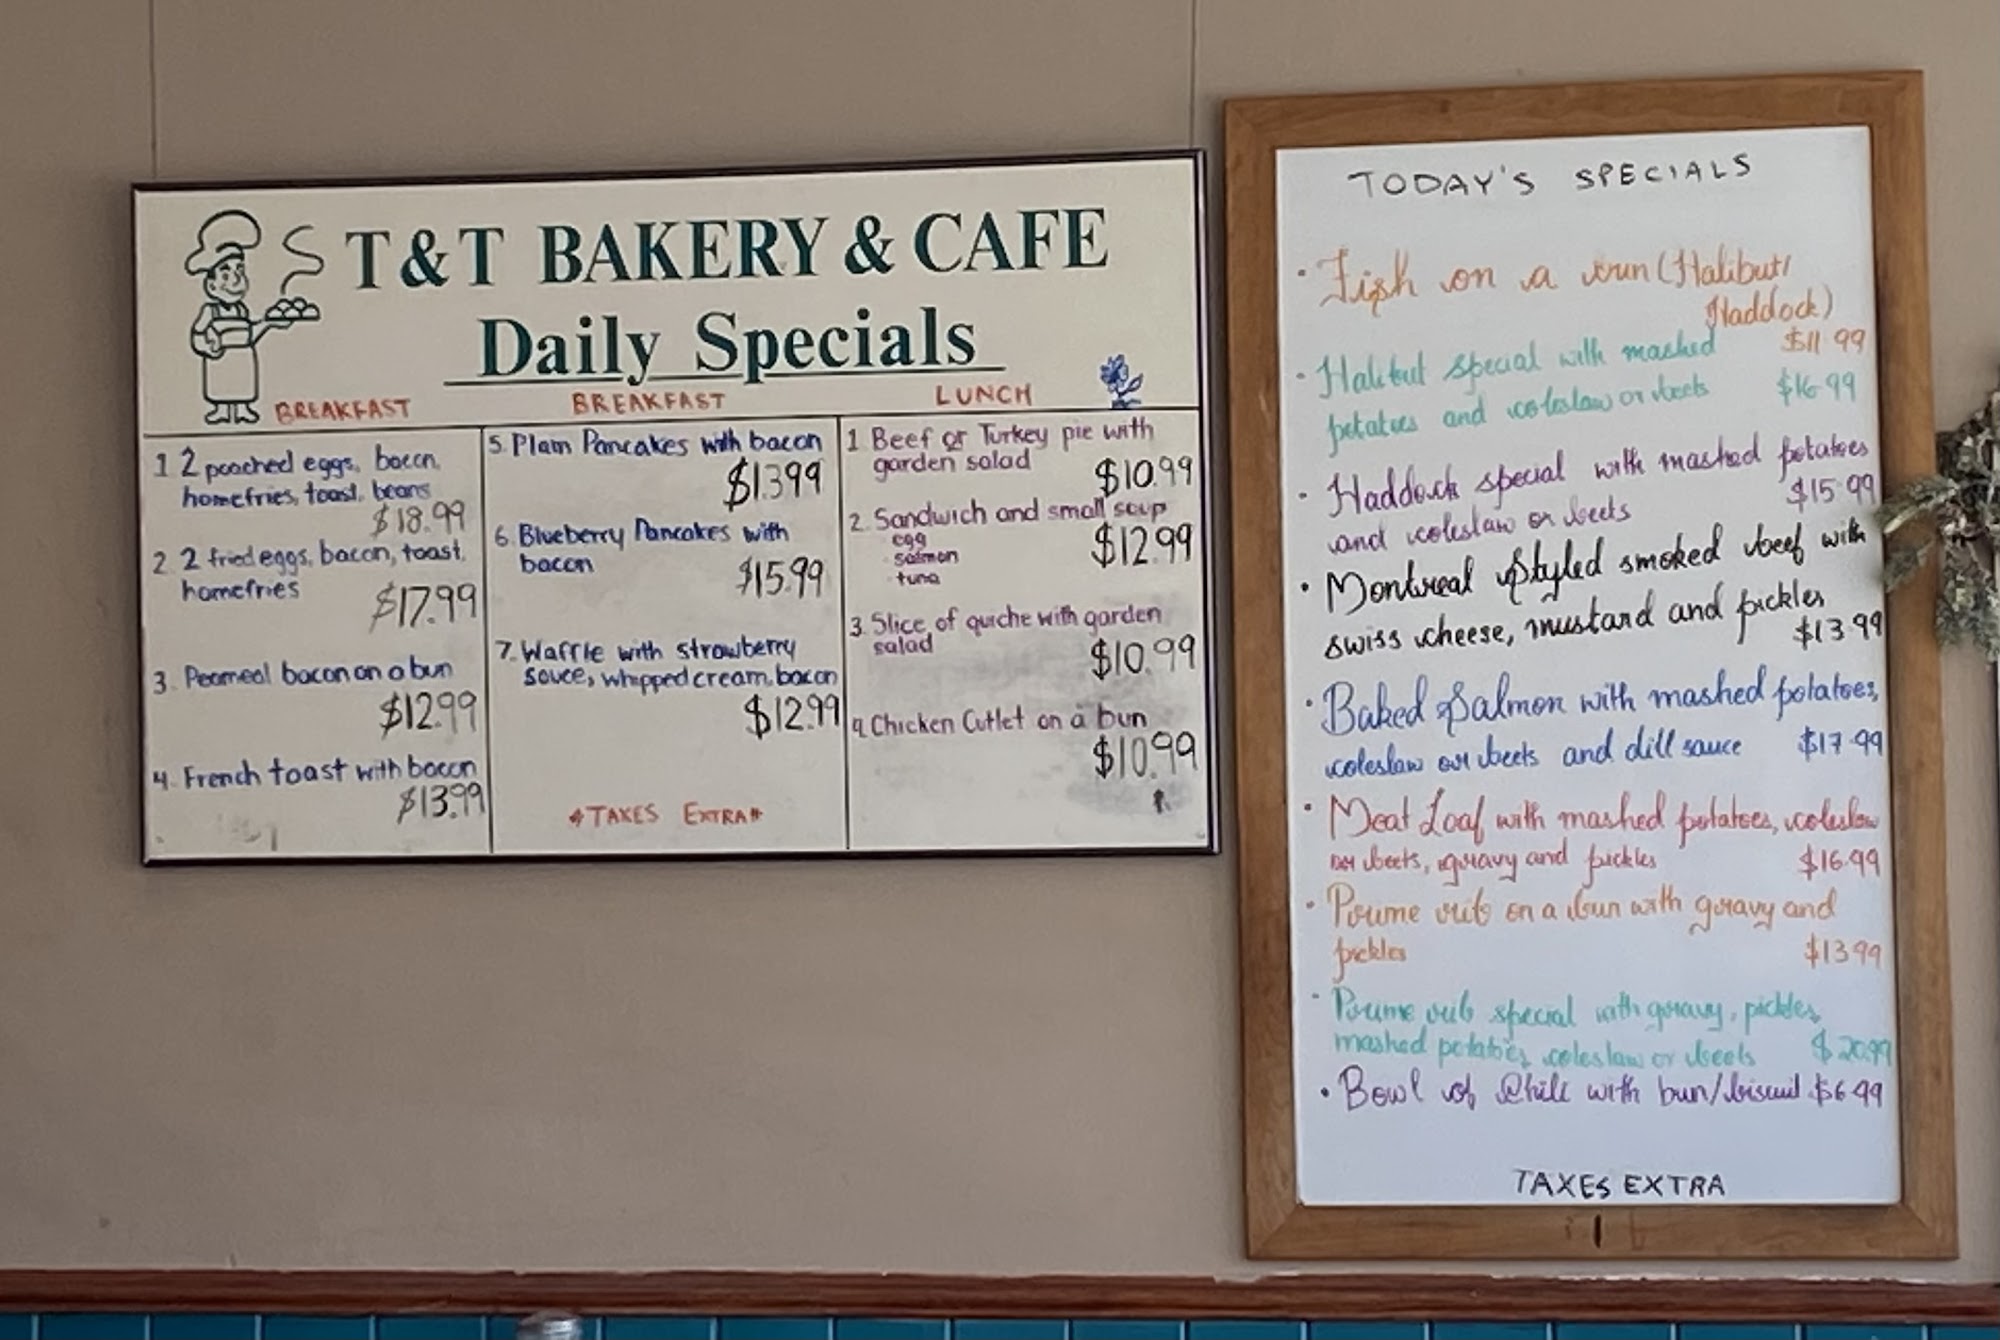 T&T BAKERY & CAFE
Daily Specials
BREAKFAST
1 2 poached eggs, bacon,
homefries, toast, beans
$18.99
2 2 fried eggs, bacon, toast,
homefries
$17.99
3. Peameal bacon on a bun
$12.99
4. French toast with bacon
$13.99
BREAKFAST
5. Plain Pancakes with bacon
$13.99
6. Blueberry Pancakes with
bacon
$15.99
7. Waffle with strawberry
sauce, whipped cream, bacon
$12.99
*TAXES EXTRA*
LUNCH
1 Beef or Turkey pie with
garden salad
$10.99
2. Sandwich and small soup
· egg
$12.99
· salmon
· tuna
3. Slice of quiche with garden
salad
$10.99
4. Chicken Cutlet on a bun
$10.99
TODAY'S SPECIALS
· Fish on a bun (Halibut/
Haddock)
$11.99
· Halibut special with mashed
potatoes and coleslaw or beets $16.99
· Haddock special with mashed potatoes
and coleslaw or beets $15.99
· Montreal Styled smoked beef with
swiss cheese, mustard and pickles
$13.99
· Baked Salmon with mashed potatoes,
coleslaw or beets and dill sauce $17.99
· Meat Loaf with mashed potatoes, coleslaw
or beets, gravy and pickles $16.99
· Prime rib on a bun with gravy and
pickles $13.99
· Prime rib special with gravy, pickles,
mashed potatoes, coleslaw or beets $20.99
· Bowl of Chili with bun/biscuit $6.99
TAXES EXTRA